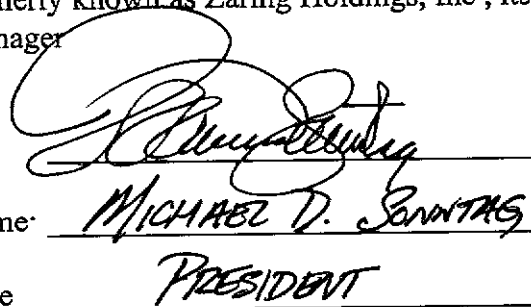 merly known as Zaring Holdings, Inc, its
nager
me MICHAEL D. SONNTAG
e PRESIDENT